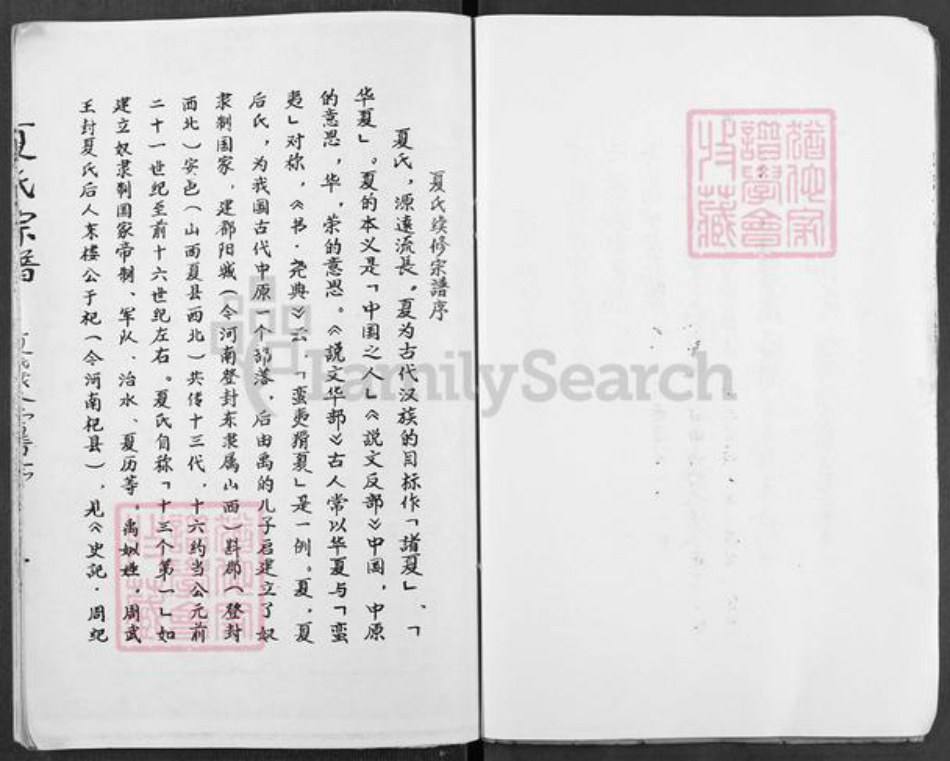 夏氏续修宗譜序
夏氏，源遠流長。夏为古代汉族的目标作「諸夏」、「
华夏」。夏的本义是「中国之人」《説文反部》中国，中原
的意思，华，荣的意思。《説文华部》古人常以华夏与「蛮
夷」对称，《书·尧典》云，「蛮夷猾夏」是一例。夏，夏
后氏，为我国古代中原一个部落，后由禹的儿子启建立了奴
隶制国家，建都阳城（今河南登封东隶属山西）斟鄩（登封
西北）安邑（山西夏县西北）共传十三代，十六约当公元前
二十一世纪至前十六世纪左右。夏氏自称「十三个第一」如
建立奴隶制国家帝制、军队、治水、夏历等。禹姒姓，周武
王封夏氏后人东楼公于杞（今河南杞县），见《史記·周紀
夏氏宗譜
猶他家
譜學會
收藏
猶他家
譜學會
收藏
FamilySearch